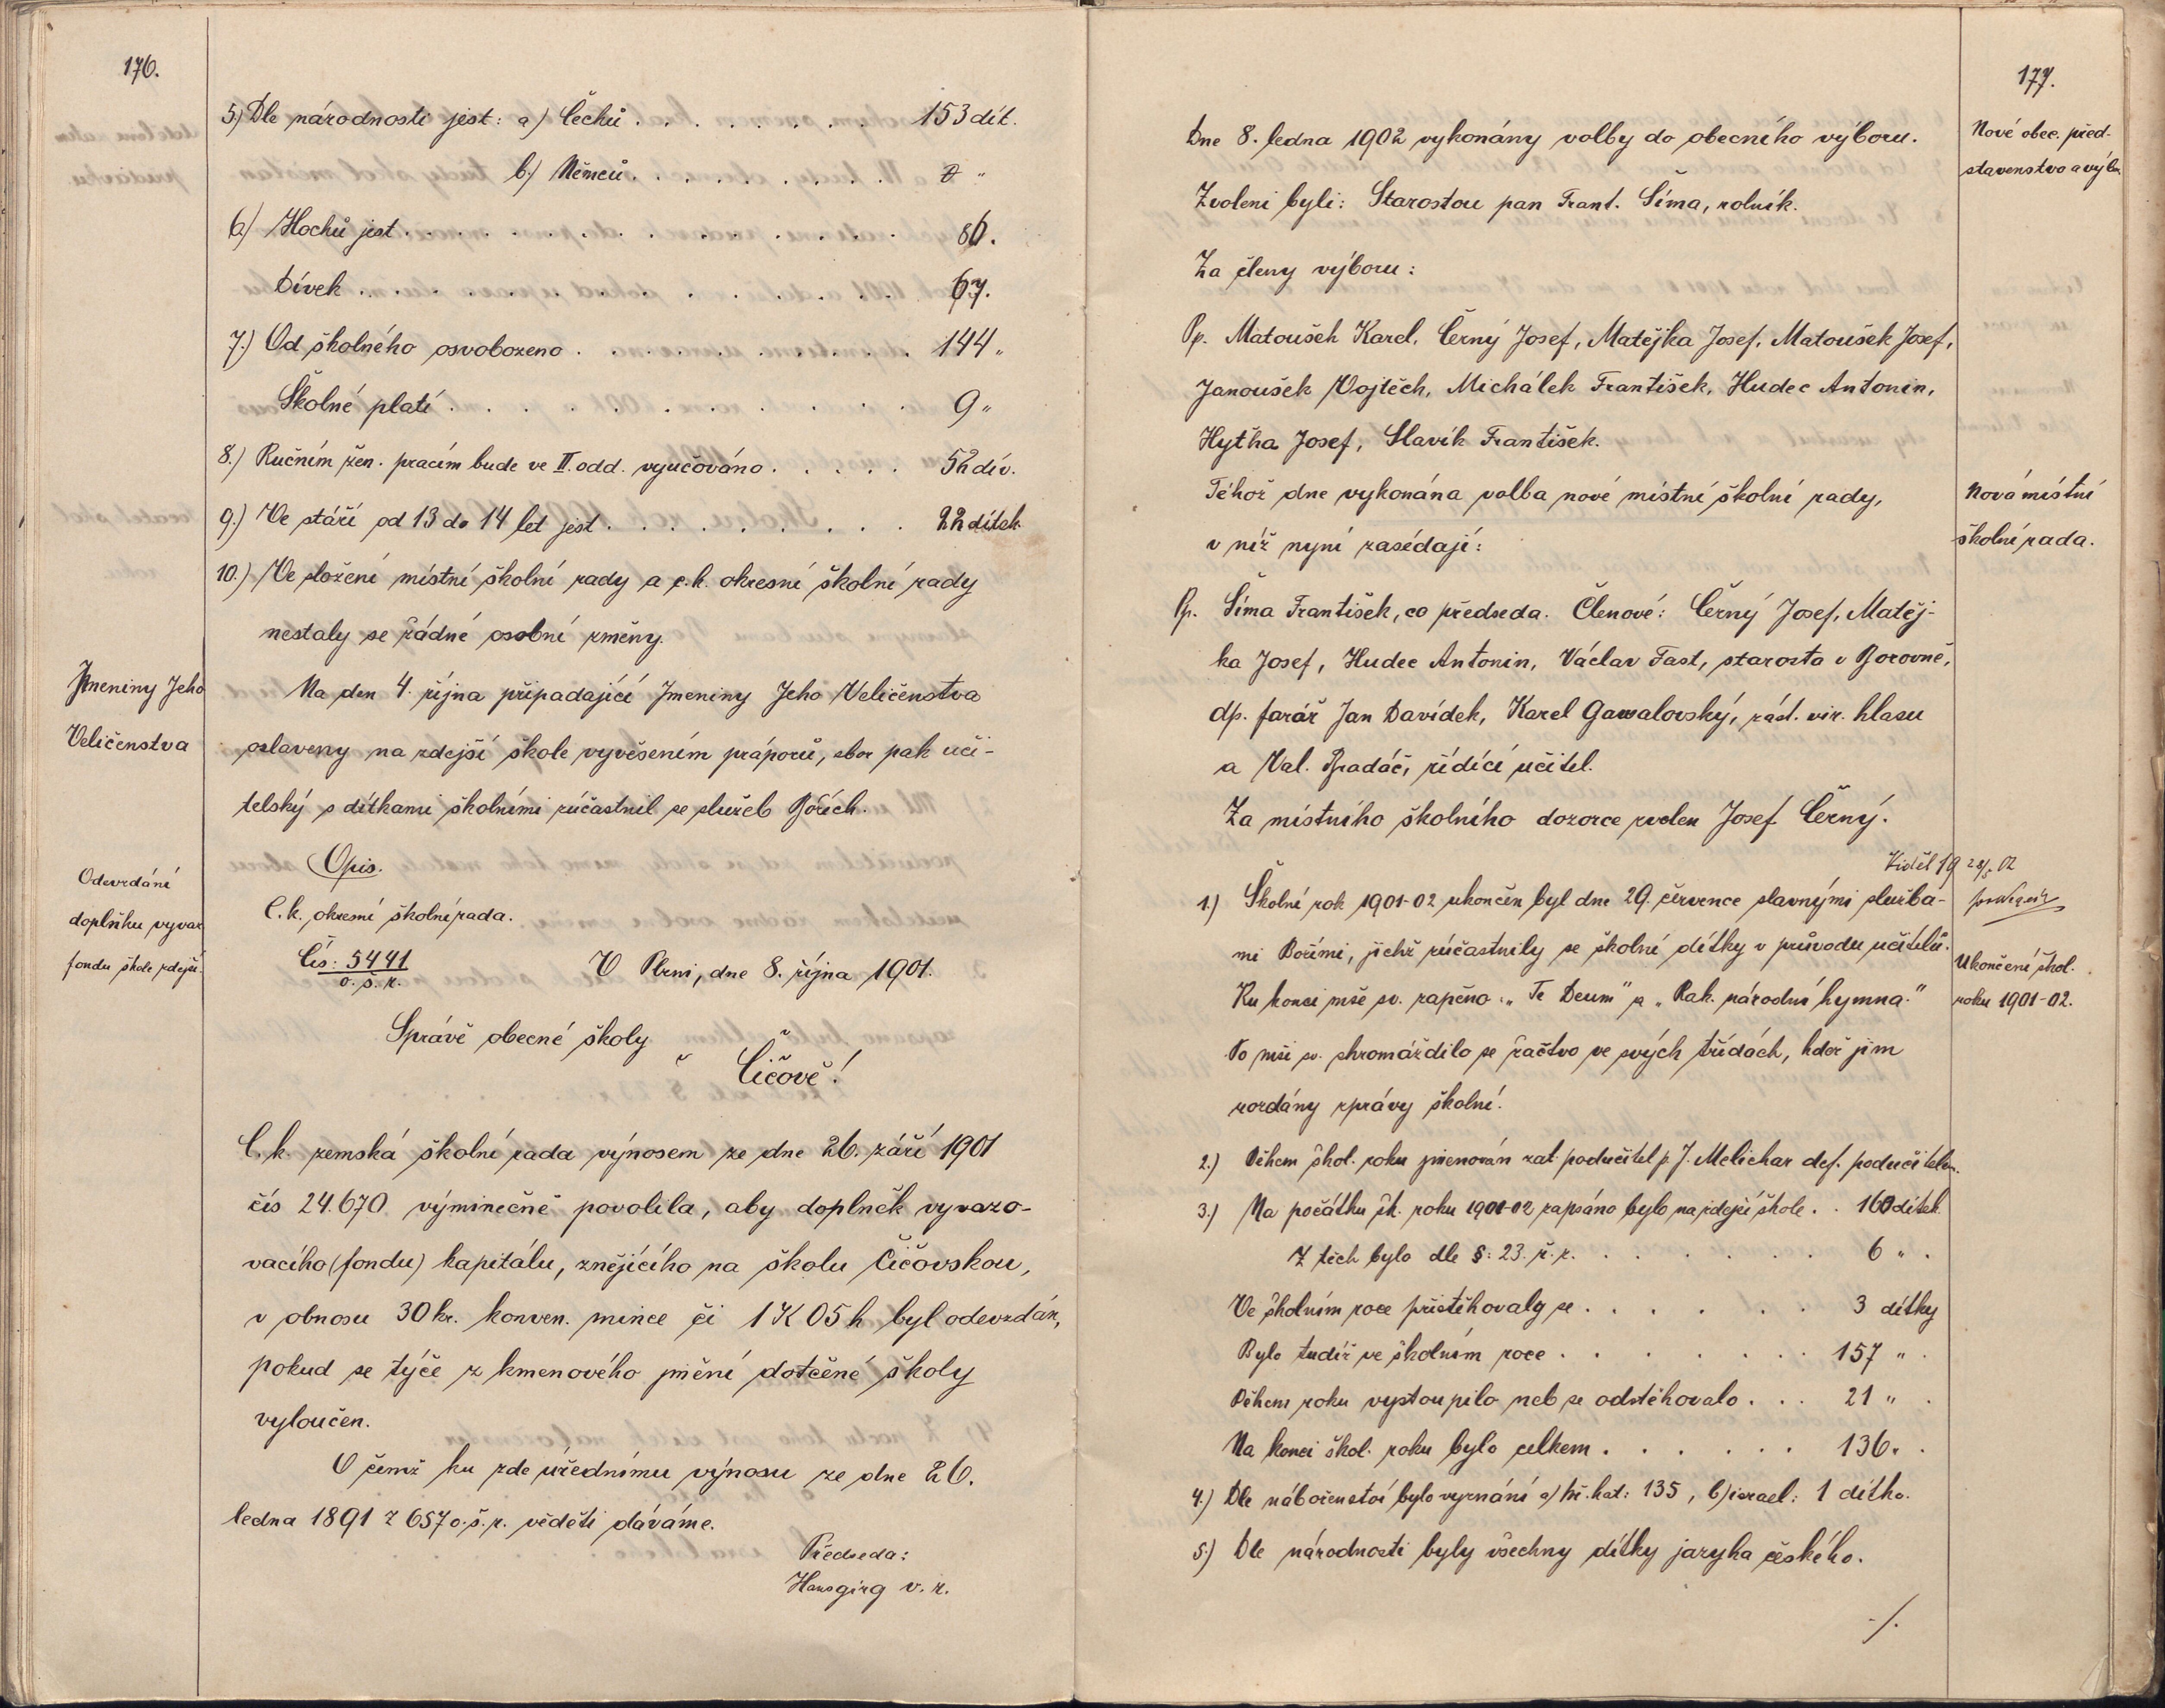 176.
5.) Dle národnosti jest: a) Čechů . . . . . . . . . 153 dít.
b.) Němců . . . . . . . . . . 0 "
6.) Hochů jest . . . . . . . . . . . . . . . 86.
Dívek . . . . . . . . . . . . . . . 67.
7.) Od školného osvobozeno . . . . . . . . . . 144 "
Školné platí . . . . . . . . . . . . 9 "
8.) Ručním žen. pracím bude ve II. odd. vyučováno . . . . . 52 dív.
9.) Ve stáří od 13 do 14 let jest . . . . . . . . . 22 dítek
10.) Ve složení místní školní rady a c.k. okresní školní rady
nestaly se žádné osobní změny.
Jmeniny Jeho
Veličenstva
Na den 4. října připadající Jmeniny Jeho Veličenstva
oslaveny na zdejší škole vyvěšením práporů, sbor pak uči-
telský s dítkami školními zúčastnil se služeb Božích.
Odevzdání
doplňku vyvaz.
fondu škole zdejší.
Opis.
C.k. okresní školní rada.
Čís: 5441
o. š. r.
V Plzni, dne 8. října 1901.
Správě obecné školy
v Čičově!
C.k. zemská školní rada výnosem ze dne 26. září 1901
čís 24.670 výminečně povolila, aby doplněk vyvazo-
vacího (fondu) kapitálu, znějícího na školu Čičovskou,
v obnosu 30 kr. konven. mince či 1 K 05 h byl odevzdán,
pokud se týče z kmenového jmění dotčené školy
vyloučen.
O čemž ku zde úřednímu výnosu ze dne 26.
ledna 1891 z 657 o. š. r. věděti dáváme.
Předseda:
Hansgirg v. r.
177.
Nové obec. před-
stavenstvo a výbor
Dne 8. ledna 1902 vykonány volby do obecního výboru.
Zvoleni byli: Starostou pan Frant. Šíma, rolník.
Za členy výboru:
Pp. Matoušek Karel, Černý Josef, Matějka Josef, Matoušek Josef,
Janoušek Vojtěch, Michálek František, Hudec Antonin,
Hytha Josef, Slavík František.
Nová místní
školní rada.
Téhož dne vykonána volba nové místní školní rady,
v níž nyní zasédají:
Pp. Šíma František, co předseda. Členové: Černý Josef, Matěj-
ka Josef, Hudec Antonin, Václav Fast, starosta v Borovně,
dp. farář Jan Davídek, Karel Gawalovský, zást. vir. hlasu
a Val. Bradáč, řídící učitel.
Za místního školního dozorce zvolen Josef Černý.
Viděl 19 28/5 02
1.) Školní rok 1901-02 ukončen byl dne 29. července slavnými služba-
mi Božími, jichž zúčastnily se školní dítky v průvodu učitelů.
Ku konci mše sv. zapěno: „Te Deum" a „Rak. národní hymna."
Po mši sv. shromáždilo se žactvo ve svých třídách, kdež jim
rozdány zprávy školní.
Ukončení škol.
roku 1901-02.
2.) Během škol. roku jmenován zat. podučitel p. J. Melichar def. podučitelem.
3.) Na počátku šk. roku 1901-02 zapsáno bylo na zdejší škole . . 160 dítek
Z těch bylo dle §: 23. ř. r. . . . . . . . 6 " .
Ve školním roce přistěhovaly se . . . . . . 3 dítky
Bylo tudíž ve školním roce . . . . . . . . 157 " .
Během roku vystoupilo neb se odstěhovalo . . . 21 " .
Na konci škol. roku bylo celkem . . . . . . 136 . .
4.) Dle náboženství bylo vyznání a) ř. kat: 135, b) israel: 1 dítko.
5.) Dle národnosti byly všechny dítky jazyka českého.
./.